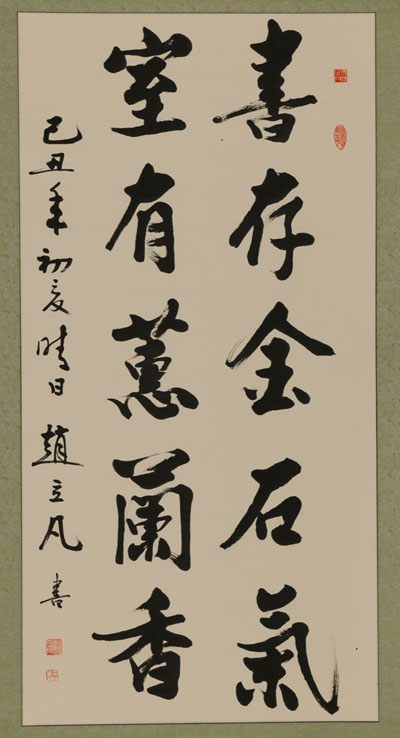 書存金石氣
室有蕙蘭香
己丑年初夏晴日趙立凡書